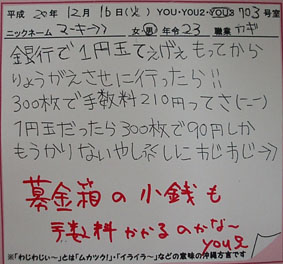 平成 20年 12月 16日(火) YOU・YOU2・YOU3 703号室
ニックネーム マーキー>> 女・男 年令 23 職業 カギ
銀行で1円玉てぇげぇもってから
りょうがえさせに行ったら!!
300枚で手数料210円ってさ(ーー)
1円玉だったら300枚で90円しか
もうかりないやしぇ しに わじわじ~>>
募金箱の小銭も
手数料かかるのかな~
you兄
※「わじわじぃ~」とは「ムカツク!」・「イライラ~」などの意味の沖縄方言です